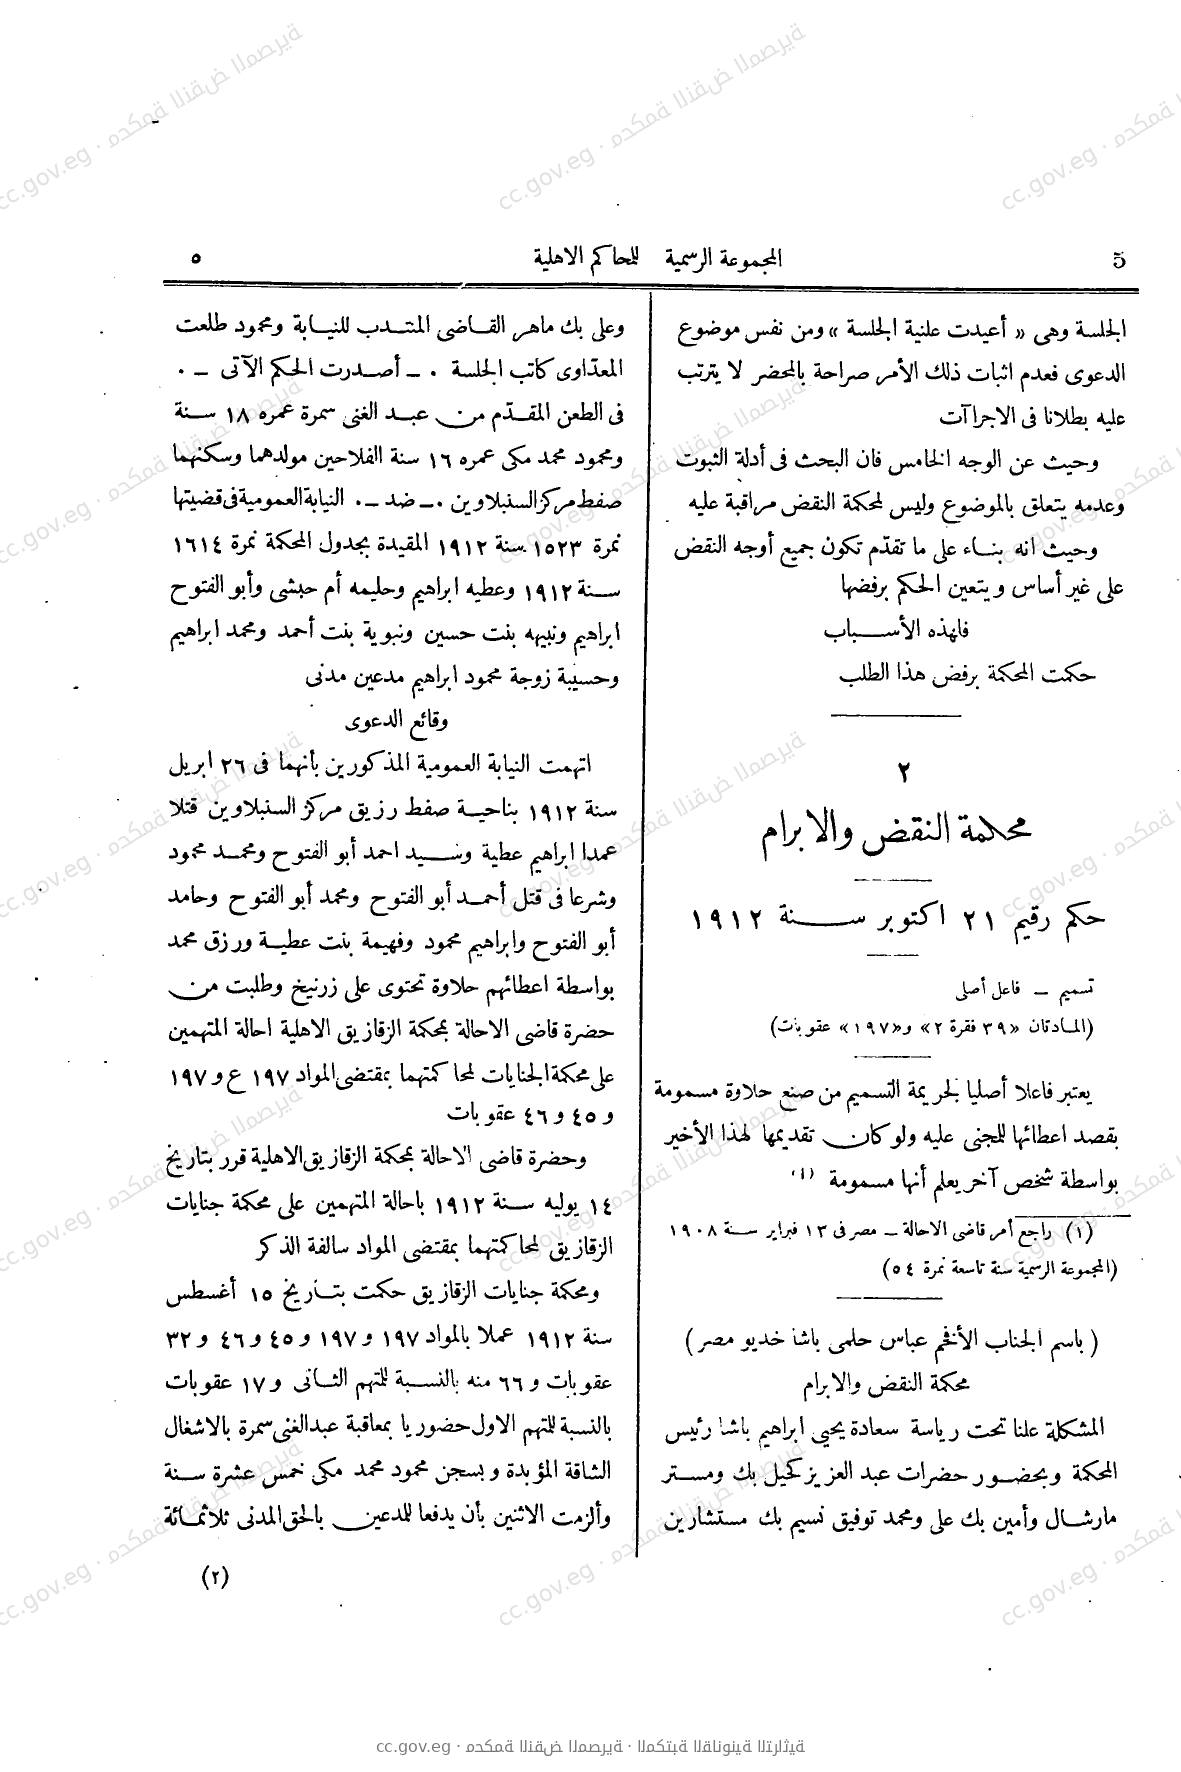 5
المجموعة الرسمية للمحاكم الاهلية
٥
الجلسة وهى « أعيدت علنية الجلسة » ومن نفس موضوع
الدعوى فعدم اثبات ذلك الأمر صراحة بالمحضر لا يترتب
عليه بطلانا فى الاجراآت
وحيث عن الوجه الخامس فان البحث فى أدلة الثبوت
وعدمه يتعلق بالموضوع وليس لمحكمة النقض مراقبة عليه
وحيث انه بناء على ما تقدّم تكون جميع أوجه النقض
على غير أساس ويتعين الحكم برفضها
فلهذه الأسباب
حكمت المحكمة برفض هذا الطلب
٢
محكمة النقض والابرام
حكم رقيم ٢١ اكتوبر سنة ١٩١٢
تسميم — فاعل أصلى
(المادتان «٣٩ فقرة ٢» و«١٩٧» عقوبات)
يعتبر فاعلا أصليا لجريمة التسميم من صنع حلاوة مسمومة
بقصد اعطائها للمجنى عليه ولو كان تقديمها لهذا الأخير
بواسطة شخص آخر يعلم أنها مسمومة (١)
(١) راجع أمر قاضى الاحالة — مصر فى ١٣ فبراير سنة ١٩٠٨
(المجموعة الرسمية سنة تاسعة نمرة ٥٤)
( باسم الجناب الأفخم عباس حلمى باشا خديو مصر )
محكمة النقض والابرام
المشكلة علنا تحت رياسة سعادة يحيى ابراهيم باشا رئيس
المحكمة وبحضور حضرات عبد العزيز كحيل بك ومستر
مارشال وأمين بك على ومحمد توفيق نسيم بك مستشارين
وعلى بك ماهر القاضى المنتدب للنيابة ومحمود طلعت
المعدّاوى كاتب الجلسة . — أصدرت الحكم الآتى — .
فى الطعن المقدّم من عبد الغنى سمرة عمره ١٨ سنة
ومحمود محمد مكى عمره ١٦ سنة الفلاحين مولدهما وسكنهما
صفط مركز السنبلاوين .— ضد —. النيابة العمومية فى قضيتها
نمرة ١٥٢٣ سنة ١٩١٢ المقيدة بجدول المحكمة نمرة ١٦١٤
سنة ١٩١٢ وعطيه ابراهيم وحليمه أم حبشى وأبو الفتوح
ابراهيم ونبيهه بنت حسين ونبوية بنت أحمد ومحمد ابراهيم
وحسيبة زوجة محمود ابراهيم مدعين مدنى
وقائع الدعوى
اتهمت النيابة العمومية المذكورين بأنهما فى ٢٦ ابريل
سنة ١٩١٢ بناحية صفط رزيق مركز السنبلاوين قتلا
عمدا ابراهيم عطية وسيد احمد أبو الفتوح ومحمد محمود
وشرعا فى قتل أحمد أبو الفتوح ومحمد أبو الفتوح وحامد
أبو الفتوح وابراهيم محمود وفهيمة بنت عطية ورزق محمد
بواسطة اعطائهم حلاوة تحتوى على زرنيخ وطلبت من
حضرة قاضى الاحالة بمحكمة الزقازيق الاهلية احالة المتهمين
على محكمة الجنايات لمحاكمتهما بمقتضى المواد ١٩٧ ع و ١٩٧
و ٤٥ و ٤٦ عقوبات
وحضرة قاضى الاحالة بمحكمة الزقازيق الاهلية قرر بتاريخ
١٤ يوليه سنة ١٩١٢ باحالة المتهمين على محكمة جنايات
الزقازيق لمحاكمتهما بمقتضى المواد سالفة الذكر
ومحكمة جنايات الزقازيق حكمت بتاريخ ١٥ أغسطس
سنة ١٩١٢ عملا بالمواد ١٩٧ و ١٩٧ و ٤٥ و ٤٦ و ٣٢
عقوبات و ٦٦ منه بالنسبة للمتهم الثانى و ١٧ عقوبات
بالنسبة للمتهم الاول حضوريا بمعاقبة عبد الغنى سمرة بالاشغال
الشاقة المؤبدة وبسجن محمود محمد مكى خمس عشرة سنة
وألزمت الاثنين بأن يدفعا للمدعين بالحق المدنى ثلاثمائة
(٢)
cc.gov.eg · محكمة النقض المصرية · المكتبة القانونية التراثية